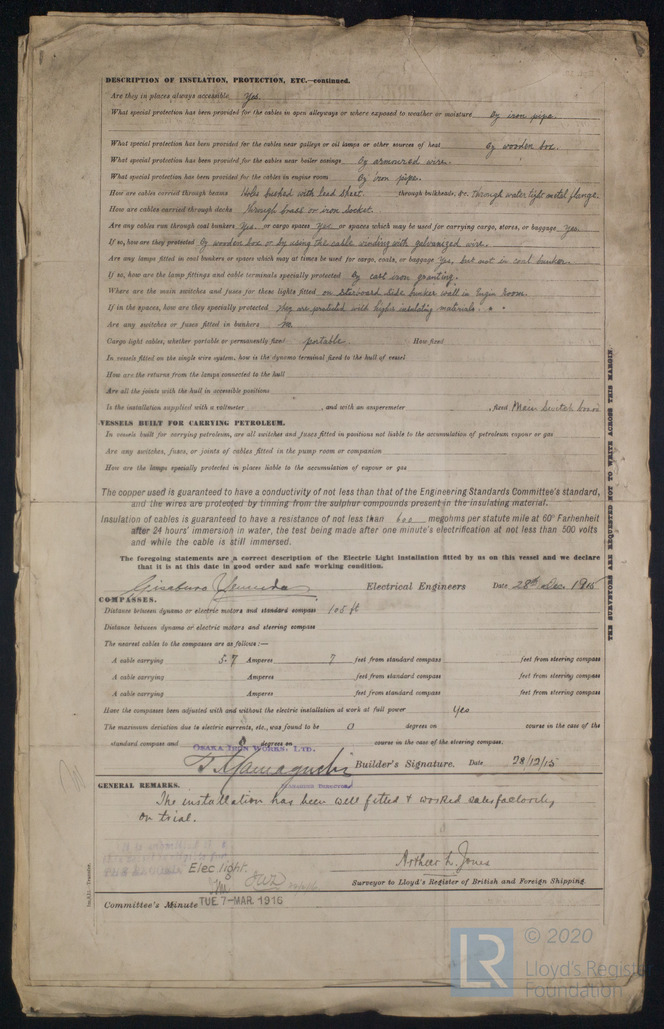 DESCRIPTION OF INSULATION, PROTECTION, ETC.—continued.
Are they in places always accessible Yes.
What special protection has been provided for the cables in open alleyways or where exposed to weather or moisture By iron pipe.
What special protection has been provided for the cables near galleys or oil lamps or other sources of heat By wooden box.
What special protection has been provided for the cables near boiler casings By armoured wire.
What special protection has been provided for the cables in engine room By iron pipe.
How are cables carried through beams Holes bushed with lead sheet. through bulkheads, &c. Through water tight metal flange.
How are cables carried through decks Through brass or iron socket.
Are any cables run through coal bunkers Yes or cargo spaces Yes or spaces which may be used for carrying cargo, stores, or baggage Yes.
If so, how are they protected By wooden box or by using the cable winding with galvanized wire.
Are any lamps fitted in coal bunkers or spaces which may at times be used for cargo, coals, or baggage Yes, but not in coal bunker.
If so, how are the lamp fittings and cable terminals specially protected By cast iron granting.
Where are the main switches and fuses for these lights fitted on Starboard side bunker wall in Engin Room.
If in the spaces, how are they specially protected They are protected with higher insulating materials.
Are any switches or fuses fitted in bunkers No.
Cargo light cables, whether portable or permanently fixed portable. How fixed
In vessels fitted on the single wire system, how is the dynamo terminal fixed to the hull of vessel
How are the returns from the lamps connected to the hull
Are all the joints with the hull in accessible positions
Is the installation supplied with a voltmeter , and with an amperemeter , fixed Main Switch board
VESSELS BUILT FOR CARRYING PETROLEUM.
In vessels built for carrying petroleum, are all switches and fuses fitted in positions not liable to the accumulation of petroleum vapour or gas
Are any switches, fuses, or joints of cables fitted in the pump room or companion
How are the lamps specially protected in places liable to the accumulation of vapour or gas
The copper used is guaranteed to have a conductivity of not less than that of the Engineering Standards Committee's standard,
and the wires are protected by tinning from the sulphur compounds present in the insulating material.
Insulation of cables is guaranteed to have a resistance of not less than 600 megohms per statute mile at 60° Farhenheit
after 24 hours' immersion in water, the test being made after one minute's electrification at not less than 500 volts
and while the cable is still immersed.
The foregoing statements are a correct description of the Electric Light installation fitted by us on this vessel and we declare
that it is at this date in good order and safe working condition.
Electrical Engineers Date 28th Dec. 1915
COMPASSES.
Distance between dynamo or electric motors and standard compass 105 ft
Distance between dynamo or electric motors and steering compass
The nearest cables to the compasses are as follows:—
A cable carrying 5.7 Amperes 7 feet from standard compass feet from steering compass
A cable carrying Amperes feet from standard compass feet from steering compass
A cable carrying Amperes feet from standard compass feet from steering compass
Have the compasses been adjusted with and without the electric installation at work at full power Yes
The maximum deviation due to electric currents, etc., was found to be 0 degrees on course in the case of the
standard compass and degrees on course in the case of the steering compass.
OSAKA IRON WORKS, LTD.
Yamaguchi Builder's Signature. Date 28/12/15
MANAGING DIRECTOR
GENERAL REMARKS.
The installation has been well fitted & worked satisfactorily
on trial.
Elec. light.
Arthur L. Jones
Surveyor to Lloyd's Register of British and Foreign Shipping.
Committee's Minute TUE. 7-MAR. 1916
THE SURVEYORS ARE REQUESTED NOT TO WRITE ACROSS THIS MARGIN.
LR © 2020
Lloyd's Register
Foundation